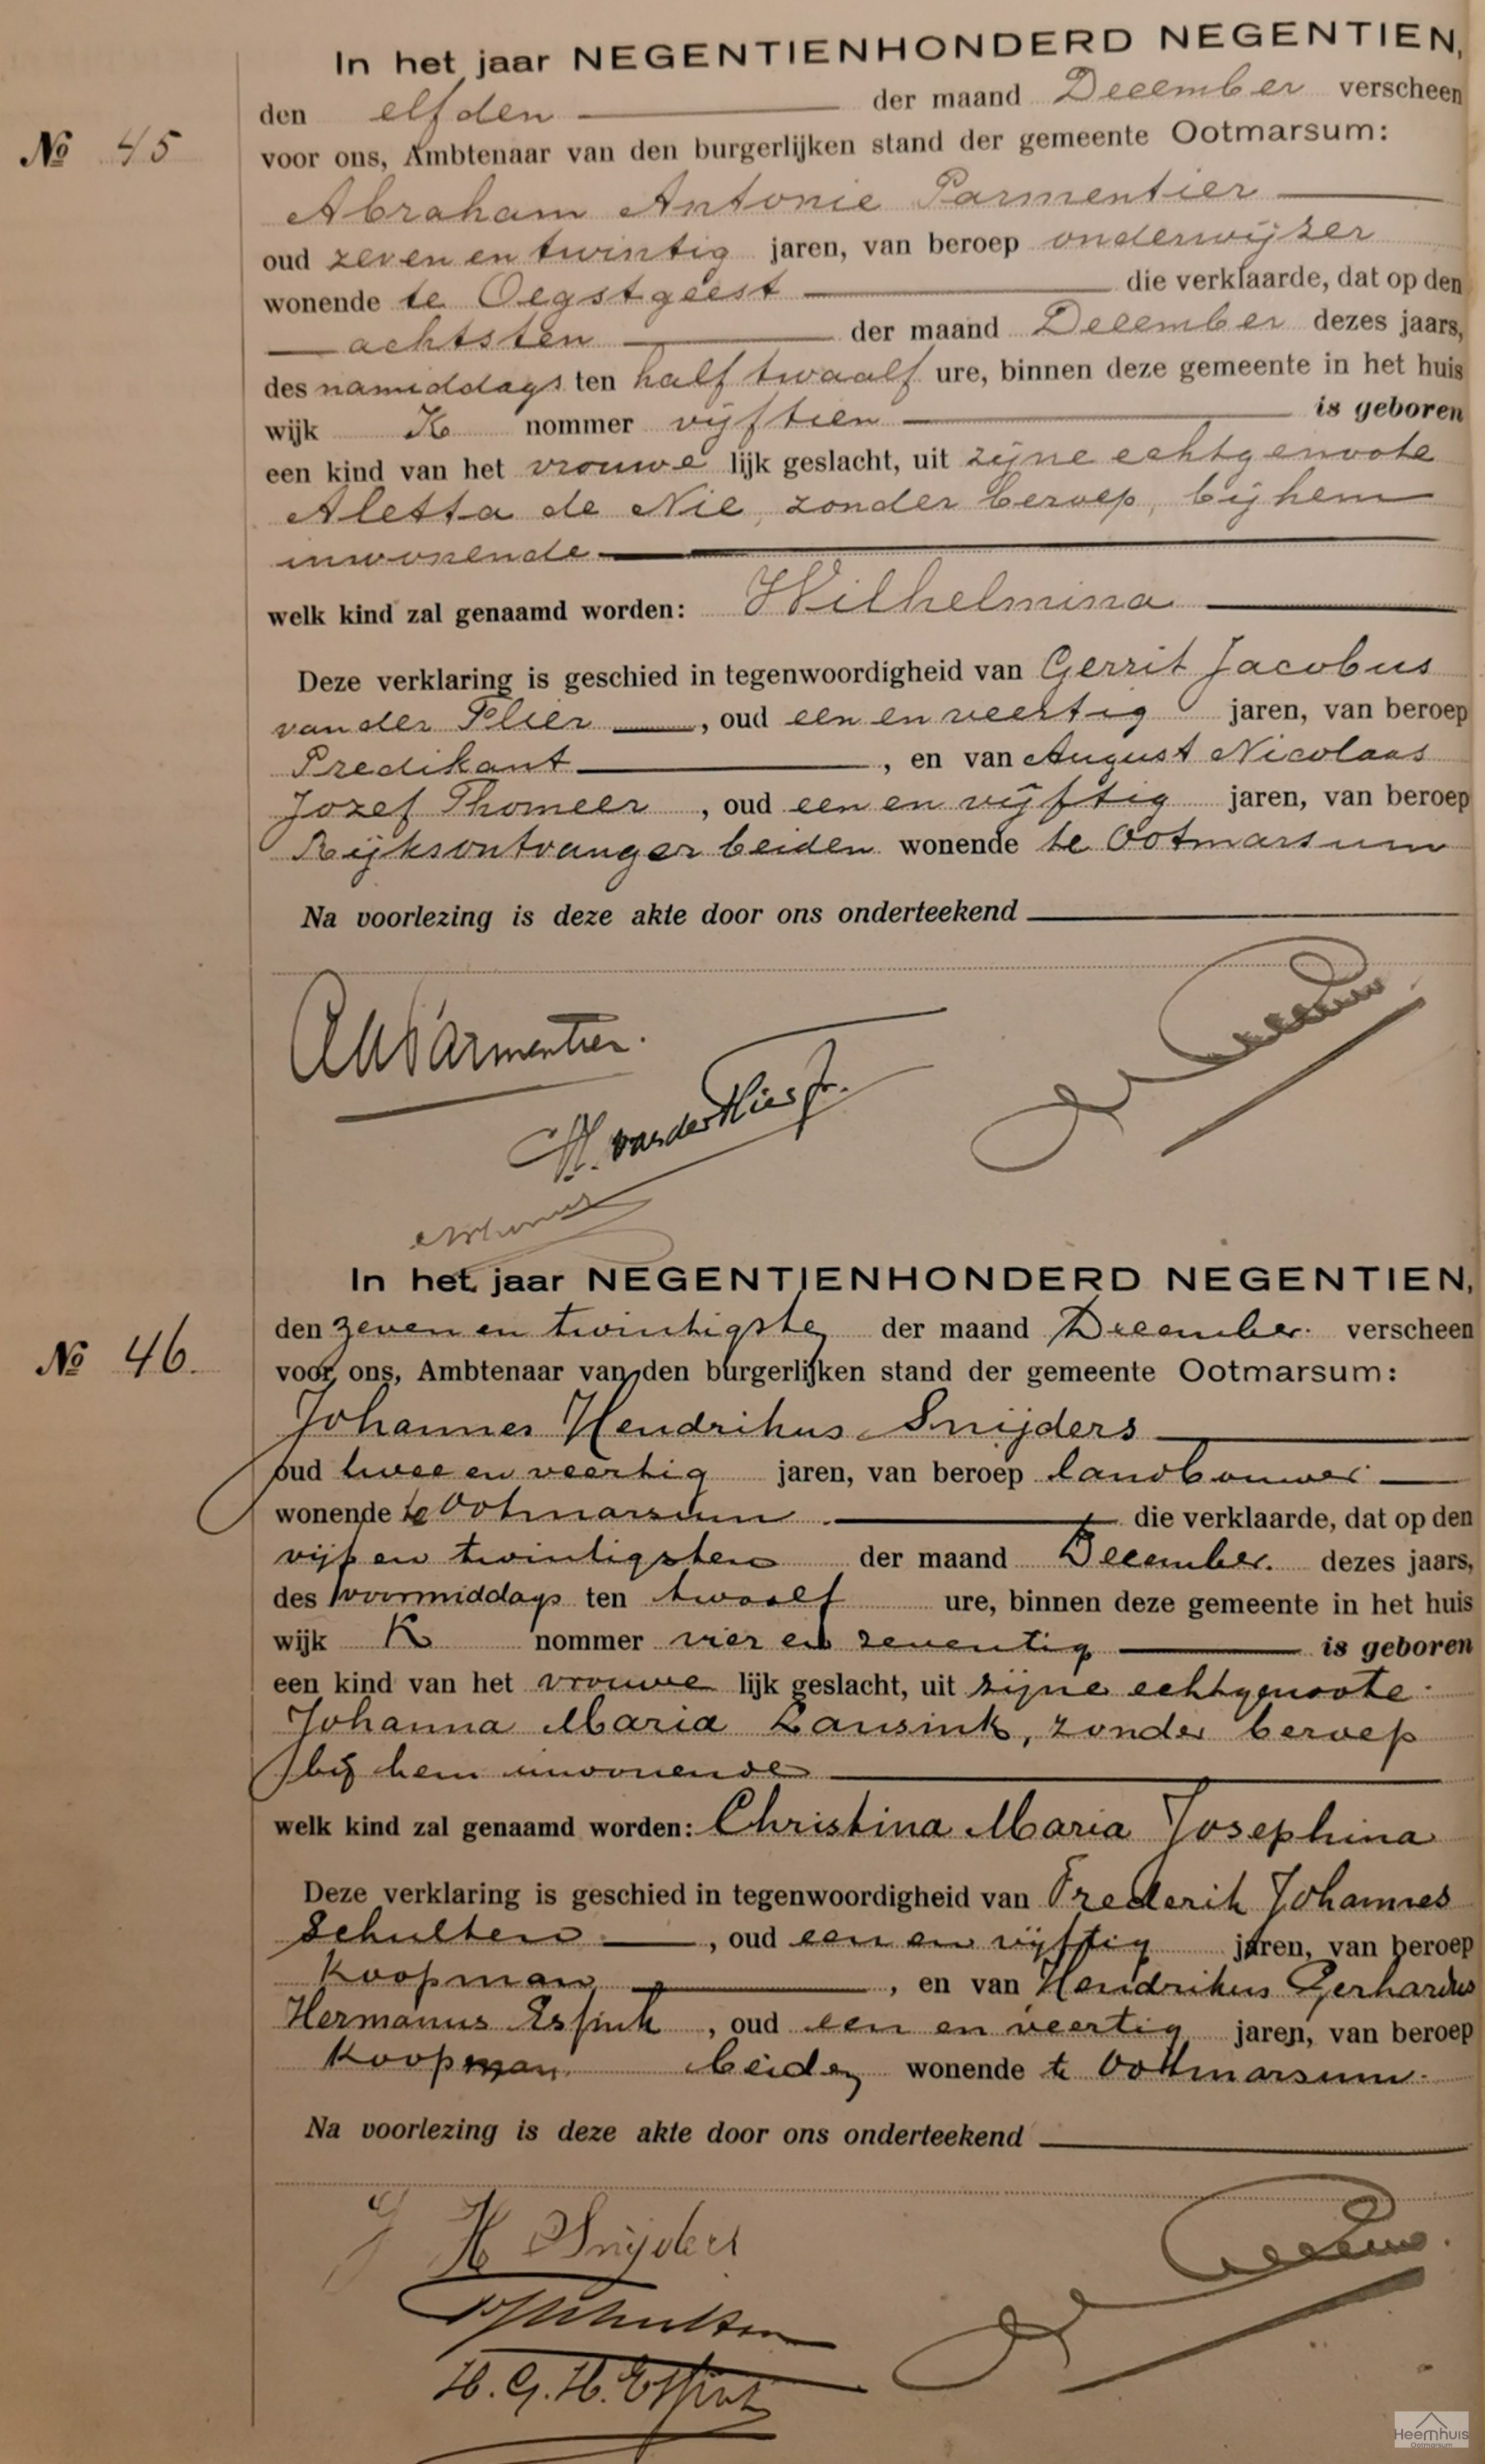 In het jaar NEGENTIENHONDERD NEGENTIEN,
den elfden der maand December verscheen
No 45
voor ons, Ambtenaar van den burgerlijken stand der gemeente Ootmarsum:
Abraham Antonie Parmentier
oud zeven en twintig jaren, van beroep onderwijzer
wonende te Oegstgeest die verklaarde, dat op den
achtsten der maand December dezes jaars,
des namiddags ten half twaalf ure, binnen deze gemeente in het huis
wijk K nommer vijftien is geboren
een kind van het vrouwe lijk geslacht, uit zijne echtgenoote
Aletta de Nie, zonder beroep, bij hem
inwonende
welk kind zal genaamd worden: Wilhelmina
Deze verklaring is geschied in tegenwoordigheid van Gerrit Jacobus
van der Flier, oud een en veertig jaren, van beroep
Predikant, en van August Nicolaas
Jozef Thomeer, oud een en vijftig jaren, van beroep
Rijksontvanger beiden wonende te Ootmarsum
Na voorlezing is deze akte door ons onderteekend
Parmentier.
van der Flier Jr.
In het jaar NEGENTIENHONDERD NEGENTIEN,
den zeven en twintigsten der maand December. verscheen
No 46.
voor ons, Ambtenaar van den burgerlijken stand der gemeente Ootmarsum:
Johannes Hendrikus Snijders
oud twee en veertig jaren, van beroep landbouwer
wonende te Ootmarsum die verklaarde, dat op den
vijf en twintigsten der maand December. dezes jaars,
des voormiddags ten twaalf ure, binnen deze gemeente in het huis
wijk K nommer vier en zeventig is geboren
een kind van het vrouwe lijk geslacht, uit zijne echtgenoote
Johanna Maria Lansink, zonder beroep
bij hem inwonende
welk kind zal genaamd worden: Christina Maria Josephina
Deze verklaring is geschied in tegenwoordigheid van Frederik Johannes
Schulten, oud een en vijftig jaren, van beroep
Koopman, en van Hendrikus Gerhardus
Hermannus Essink, oud een en veertig jaren, van beroep
Koopman beiden wonende te Ootmarsum.
Na voorlezing is deze akte door ons onderteekend
J H Snijders
FJSchulten
H. G. H. Essink
Heemhuis
Ootmarsum